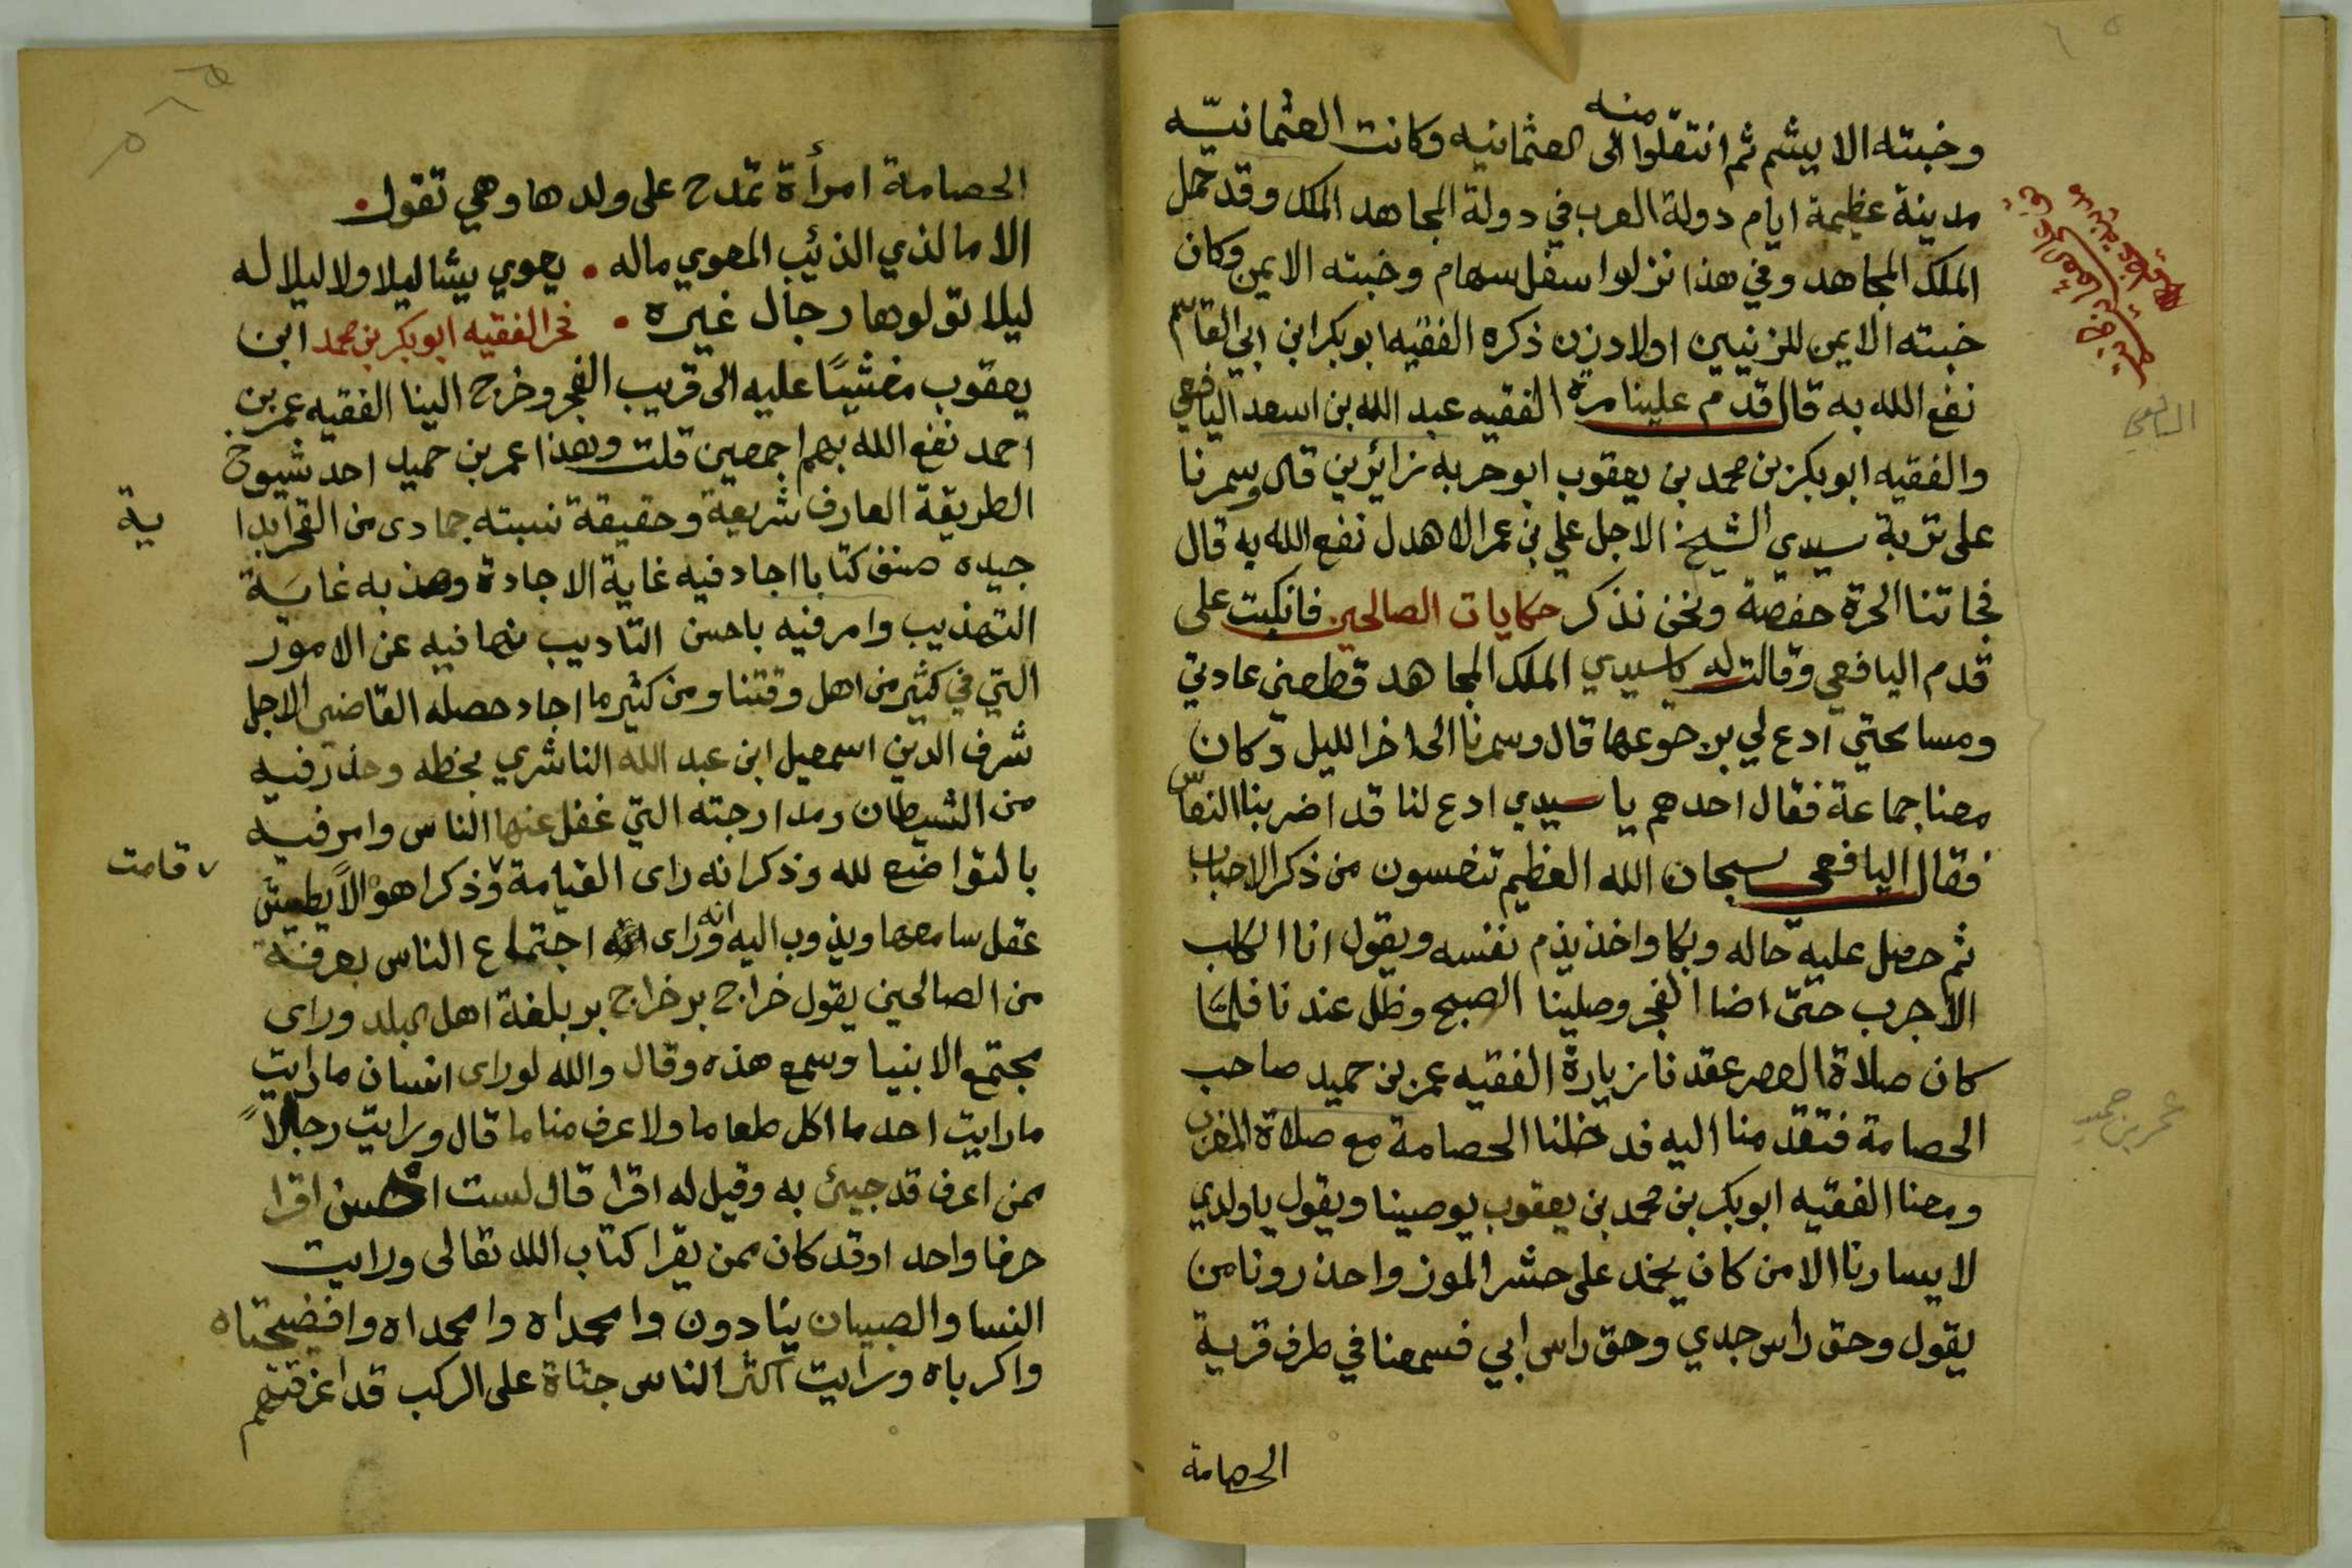 وخبته الايشم ثم انتقلوا منه الى العثمانيه وكانت العثمانيّه
مدينة عظيمة ايام دولة العرب في دولة المجاهد الملك وقد حمل
الملك المجاهد وفي هذا نزلوا سفل سهام وخبته الايمن وكان
خبته الايمن للزنيبين اولاد زن ذكره الفقيه ابو بكر ابن ابي القاسم
نفع الله به قال قدم علينا مرة الفقيه عبد الله بن اسعد اليافعي
والفقيه ابو بكر بن محمد بن يعقوب ابو حربه زائرين قال وسمرنا
على تربة سيدي الشيخ الاجل علي بن عمر الاهدل نفع الله به قال
فجاتنا الحرة حفصة ونحن نذكر حكايات الصالحين فانكبت على
قدم اليافعي وقالت له يا سيدي الملك المجاهد قطعني عادتي
ومسامحتي ادع لي برجوعها قال وسمرنا الى اخر الليل وكان
معنا جماعة فقال احدهم يا سيدي ادع لنا قد اضر بنا النعاس
فقال اليافعي سبحان الله العظيم تنعسون من ذكر الاحباب
ثم حصل عليه حاله وبكا واخذ يذم نفسه ويقول انا الكلب
الاجرب حتى اضا الفجر وصلينا الصبح وظل عندنا فلما
كان صلاة العصر عقدنا زيارة الفقيه عمر بن حميد صاحب
الحصامة فتقدمنا اليه فدخلنا الحصامة مع صلاة المغرب
ومعنا الفقيه ابو بكر بن محمد بن يعقوب يوصينا ويقول يا ولدي
لا يسارنا الا من كان يخمد على حشر الموز واحذرونا من
يقول وحق راس جدي وحق راس ابي فسمعنا في طرف قرية
الحصامة
اليافعي
عمر بن حميد
الحصامة امرأة تمدح على ولدها وهي تقول
الا ما لذي الذئيب المعوي ماله . يعوي بيشا ليلا ولا ليلا له
ليلا تولوها رجال غيره . فخر الفقيه ابو بكر بن محمد ابن
يعقوب مغشيًا عليه الى قريب الفجر وخرج الينا الفقيه عمر بن
احمد نفع الله بهم اجمعين قلت وهذا عمر بن حميد احد شيوخ
الطريقة العارف شريعة وحقيقة نسبته جمادى من القحرا
ية
جيده صنف كتابا اجاد فيه غاية الاجادة وهذبه غاية
التهذيب وامر فيه باحسن التاديب نها فيه عن الامور
التي في كثير من اهل وقتنا ومن كثير ما اجاد حصله القاضي الاجل
شرف الدين اسمعيل ابن عبد الله الناشري بخطه وحذر فيه
من الشيطان ومدارجته التي غفل عنها الناس وامر فيه
بالتواضع لله وذكر انه راى القيامة وذكر اهوالاً يطيش
قامت
عقل سامعها ويذوب اليه وراى انه اجتماع الناس بعرفة
من الصالحين يقول خراج بر خراج بر بلغة اهل البلد وراى
مجتمع الانبيا وسمع هذه وقال والله لو راى انسان ما رايت
ما رايت احد ما اكل طعاما ولا عرف مناما قال ورايت رجالاً
ممن اعرف قد جيئ به وقيل له اقرا قال لست احسن اقرا
حرفا واحد اوقد كان ممن يقرا كتاب الله تعالى ورايت
النسا والصبيان ينادون وامحمداه وامحمداه وافضيحتاه
واكرباه ورايت اكثر الناس جثاة على الركب قد اغرقتهم